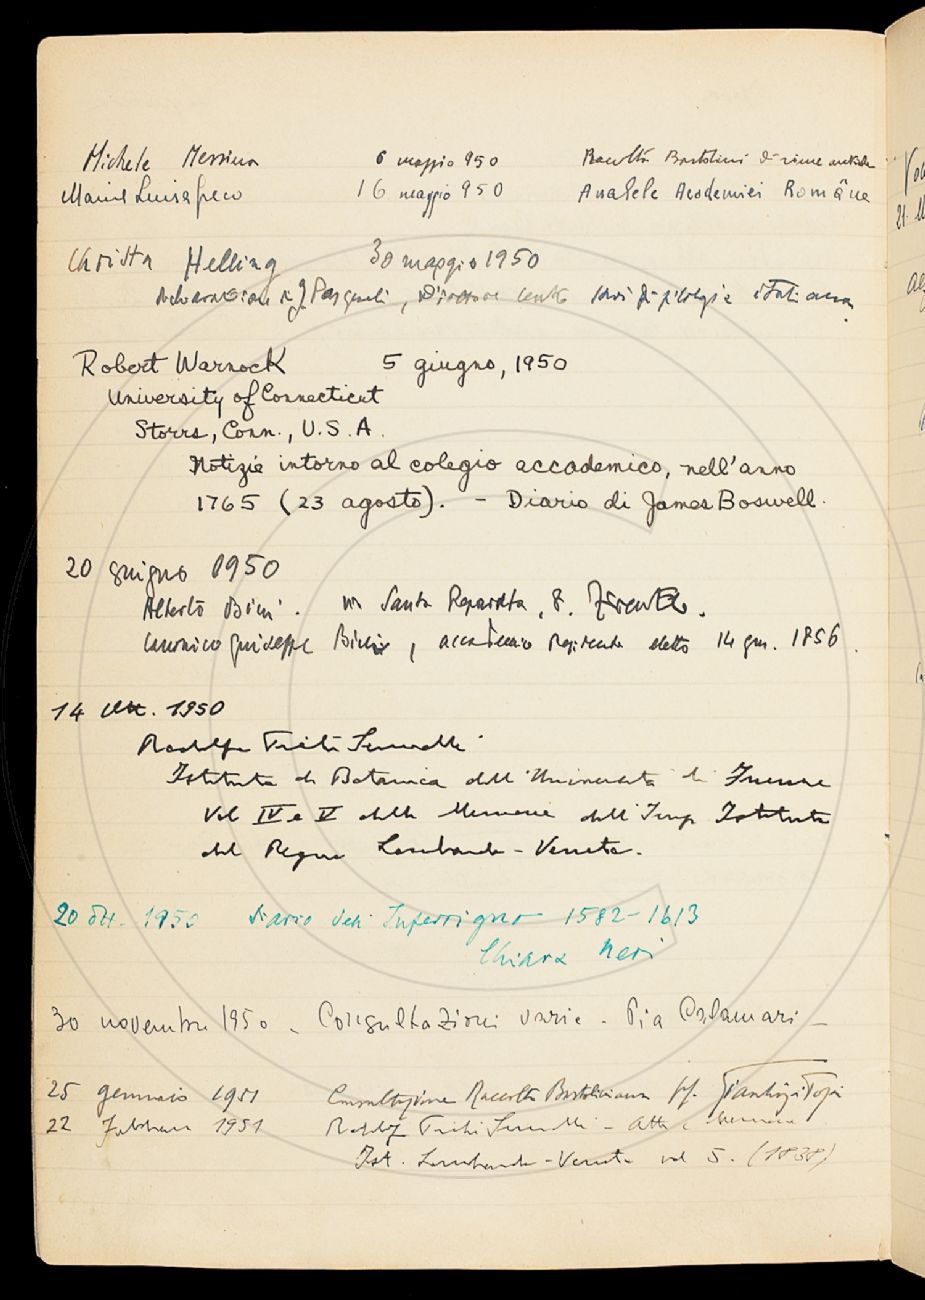 Michele Messina 6 maggio 950 Raccolta Bartolini di rime antiche
Maria Luisa 16 maggio 950 Analele Academiei Române
Christa Helling 30 maggio 1950
Dichiarazione di G. Pasquali, Direttore Centro studi di filologia italiana.
Robert Warnock 5 giugno, 1950
University of Connecticut
Storrs, Conn., U.S.A.
Notizie intorno al colegio accademico, nell'anno
1765 (23 agosto). - Diario di James Boswell.
20 giugno 1950
Alberto Bini. via Santa Reparata, 8. Firenze.
Canonico Giuseppe Bini, accademico residente eletto 14 gen. 1856.
14 Ott. 1950
Rodolfo Pichi Sermolli
Istituto di Botanica dell'Università di Firenze
Vol IV e V delle Memorie dell'Imp. Istituto
del Regno Lombardo-Veneto.
20 Ott. 1950 Diario dell'Inferrigno 1582-1613
Chiara Neri
30 novembre 1950 - Consultazioni varie - Pia Calamari -
25 gennaio 1951 Consultazione Raccolta Bartoliniana
22 Febbraio 1951 Rodolfo Pichi Sermolli - Atti e Memorie
Ist. Lombardo-Veneto vol 5. (1838)